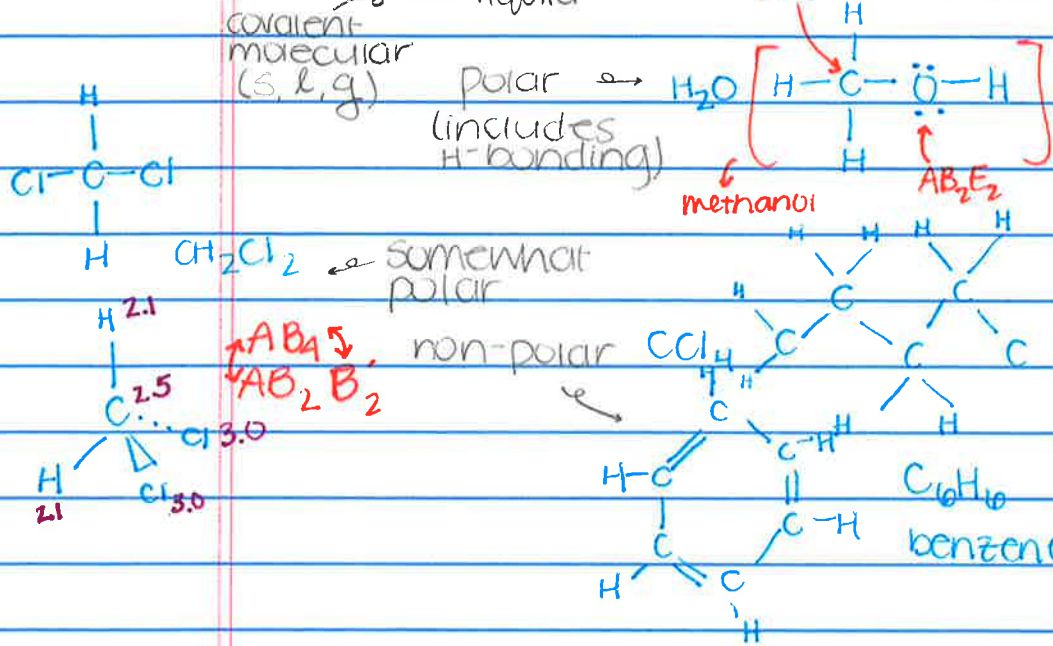 covalent
molecular
(s, l, g)
polar → H₂O [H–C–Ö–H]
H
H
(includes
H-bonding)
methanol
AB₂E₂
H
Cl–C–Cl
H
CH₂Cl₂
somewhat
polar
H 2.1
C 2.5
Cl 3.0
H
2.1
Cl 3.0
AB₄
AB₂B'₂
non-polar
CCl₄
H H H H
H C C
C C C
H H H
H
C
H–C C–H
C C–H
H C
H
C₆H₆
benzen